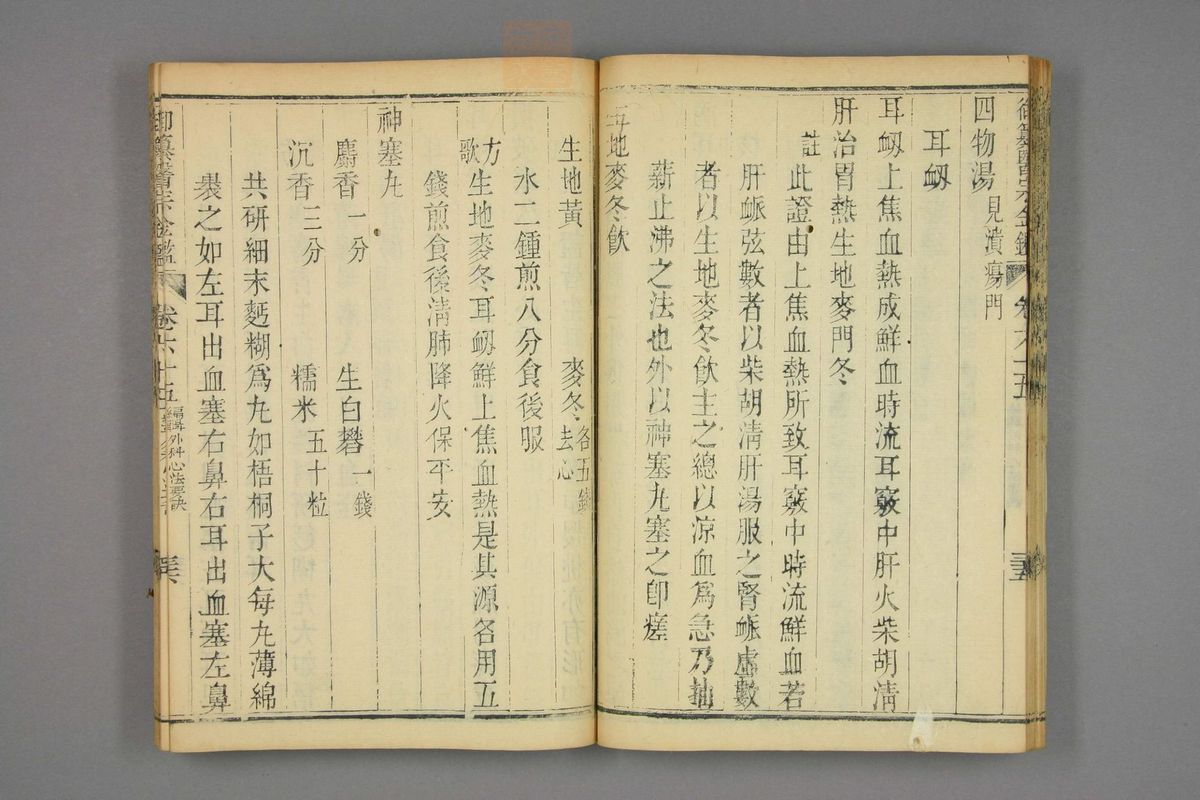 御纂醫宗金鑑 卷六十五 三五
四物湯 見潰瘍門
耳衂
耳衂上焦血熱成鮮血時流耳竅中肝火柴胡清
肝治胃熱生地麥門冬
註 此證由上焦血熱所致耳竅中時流鮮血若
肝脈弦數者以柴胡清肝湯服之腎脈虛數
者以生地麥冬飲主之總以涼血爲急乃抽
薪止沸之法也外以神塞丸塞之卽瘥
生地麥冬飮
生地黃 麥冬 去心 各五錢
水二鍾煎八分食後服
方歌 生地麥冬耳衂鮮上焦血熱是其源各用五
錢煎食後淸肺降火保平安
神塞丸
麝香 一分 生白礬 一錢
沉香 三分 糯米 五十粒
共研細末麪糊爲丸如梧桐子大每丸薄綿
裹之如左耳出血塞右鼻右耳出血塞左鼻
御纂醫宗金鑑 卷六十五 編輯外科心法要訣 三六